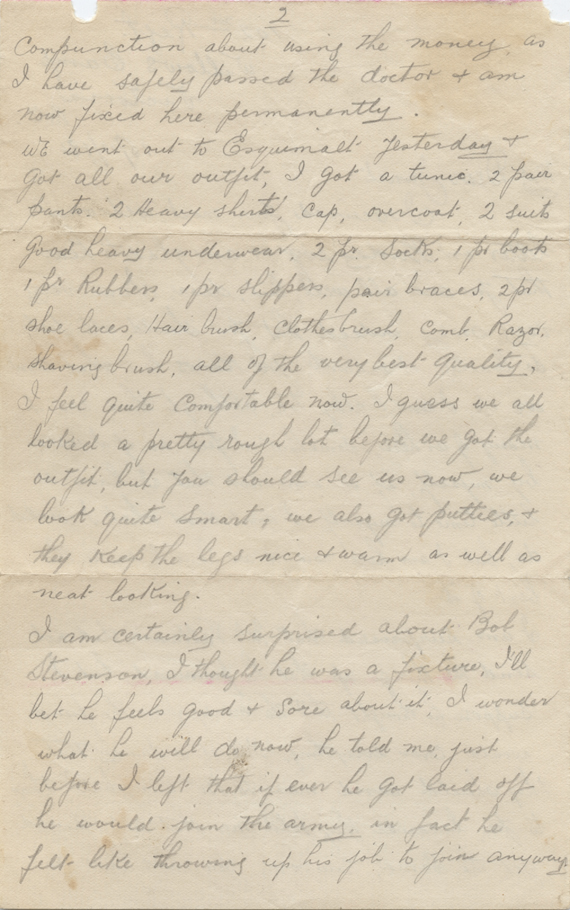 2
Compunction about using the money, as
I have safely passed the doctor & am
now fixed here permanently.
We went out to Esquimalt yesterday &
got all our outfit, I got a tunic. 2 pair
pants. 2 Heavy shirts, cap, overcoat, 2 suits
good heavy underwear, 2 pr. socks, 1 pr boots
1 pr Rubbers, 1 pr slippers, pair braces, 2 pr
shoe laces, Hair brush, clothesbrush, comb, Razor,
shaving brush, all of the very best quality,
I feel quite comfortable now. I guess we all
looked a pretty rough lot before we got the
outfit, but you should see us now, we
look quite smart, we also got putties, &
they keep the legs nice & warm as well as
neat looking.
I am certainly surprised about Bob
Stevenson, I thought he was a fixture, I'll
bet he feels good & sore about it, I wonder
what he will do now, he told me just
before I left that if ever he got laid off
he would join the army, in fact he
felt like throwing up his job to join anyway.